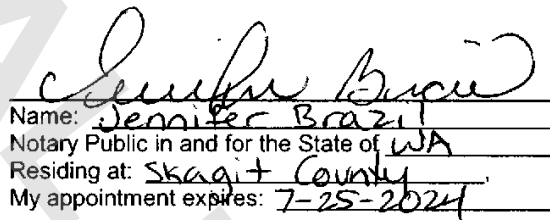 Jennifer Brazil
Name: Jennifer Brazil
Notary Public in and for the State of WA
Residing at: Skagit County,
My appointment expires: 7-25-2024